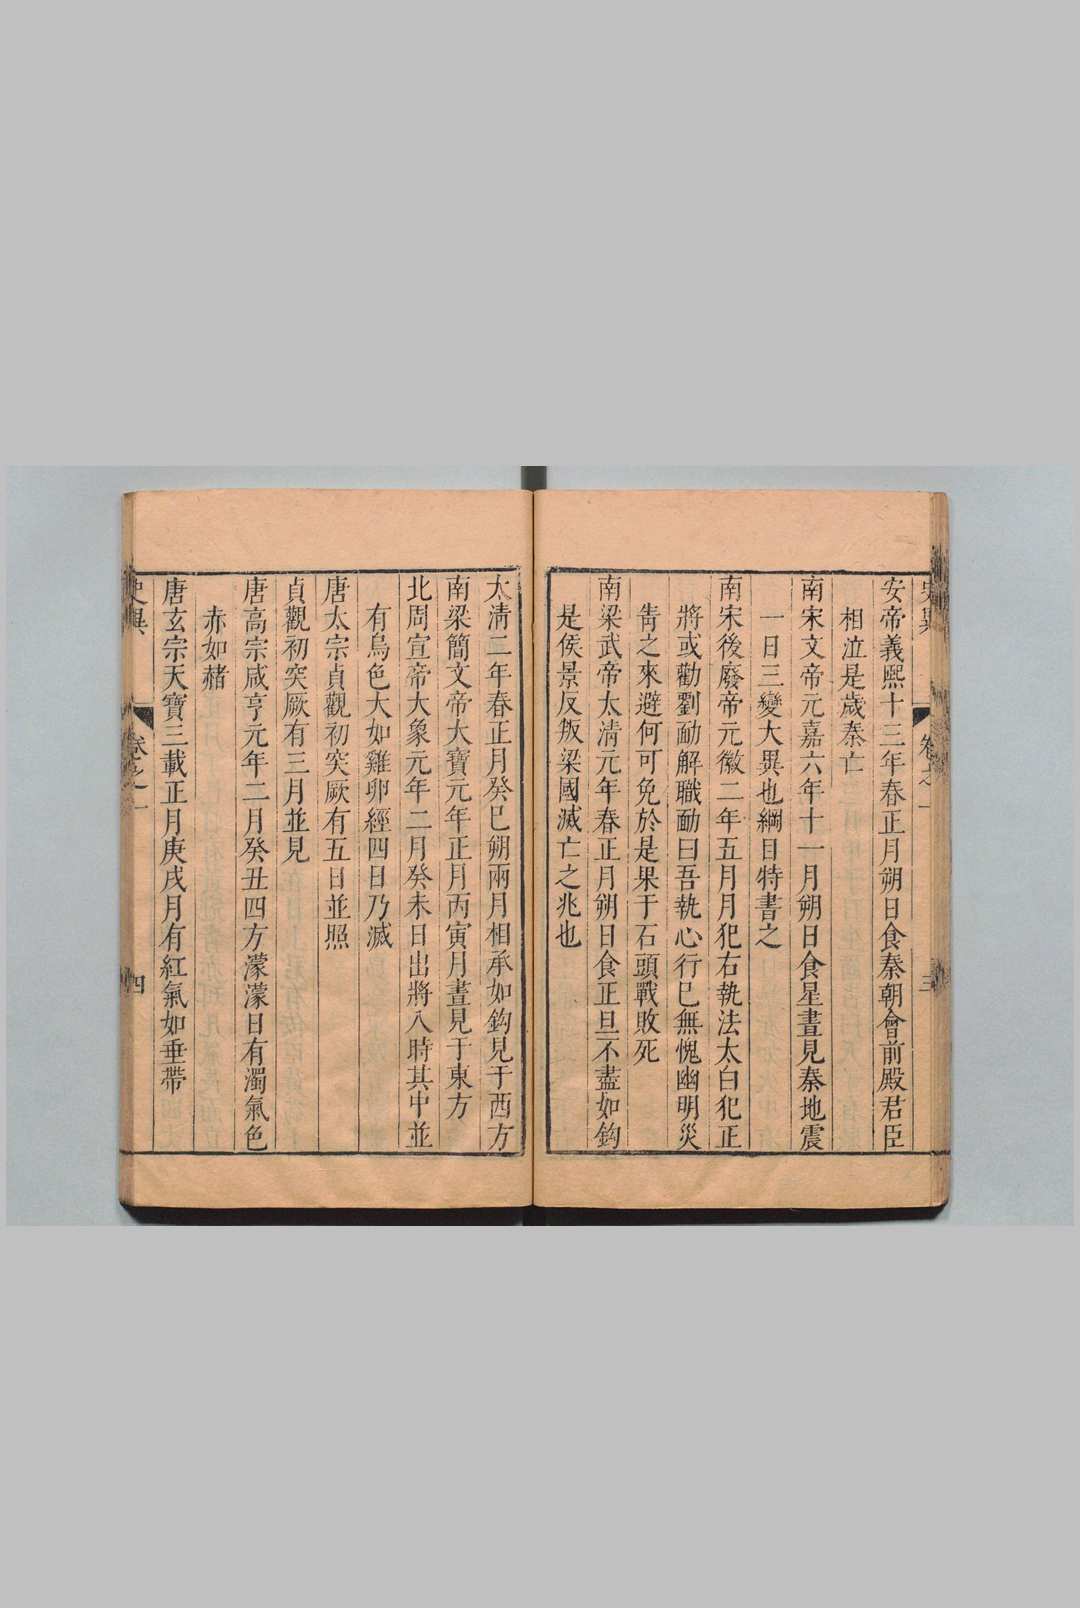 安帝義熙十三年春正月朔日食秦朝會前殿君臣
相泣是歲秦亡
南宋文帝元嘉六年十一月朔日食星晝見秦地震
一日三變大異也綱目特書之
南宋後廢帝元徽二年五月月犯右執法太白犯正
將或勸劉勔解職勔曰吾執心行巳無愧幽明災
眚之來避何可免於是果于石頭戰敗死
南梁武帝太清元年春正月朔日食正旦不盡如鈎
是侯景反叛梁國滅亡之兆也
史異
卷之一
三
太淸二年春正月癸巳朔兩月相承如鈎見于西方
南梁簡文帝大寶元年正月丙寅月晝見于東方
北周宣帝大象元年二月癸未日出將入時其中並
有烏色大如雞卵經四日乃滅
唐太宗貞觀初突厥有五日並照
貞觀初突厥有三月並見
唐高宗咸亨元年二月癸丑四方濛濛日有濁氣色
赤如赭
唐玄宗天寶三載正月庚戌月有紅氣如垂帶
史異
卷之一
四